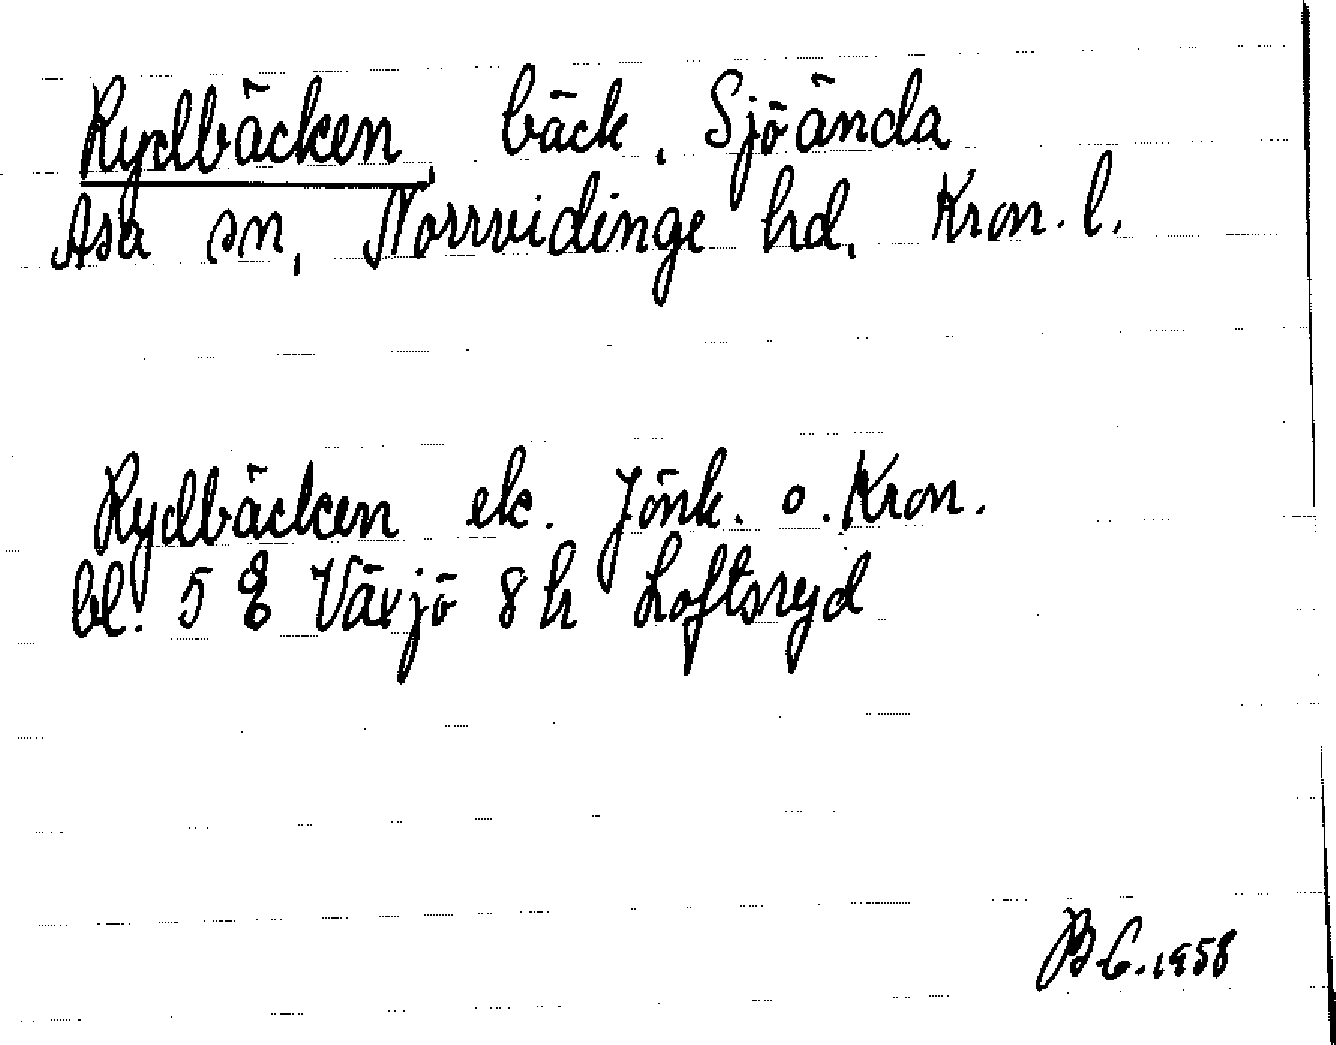 Rydbäcken, bäck, Sjöända
Asa sn, Norrvidinge hd, Kron. l.
Rydbäcken ek. Jönk. o. Kron.
bl. 5 E Växjö 8 h Loftsryd
B.C. 1958